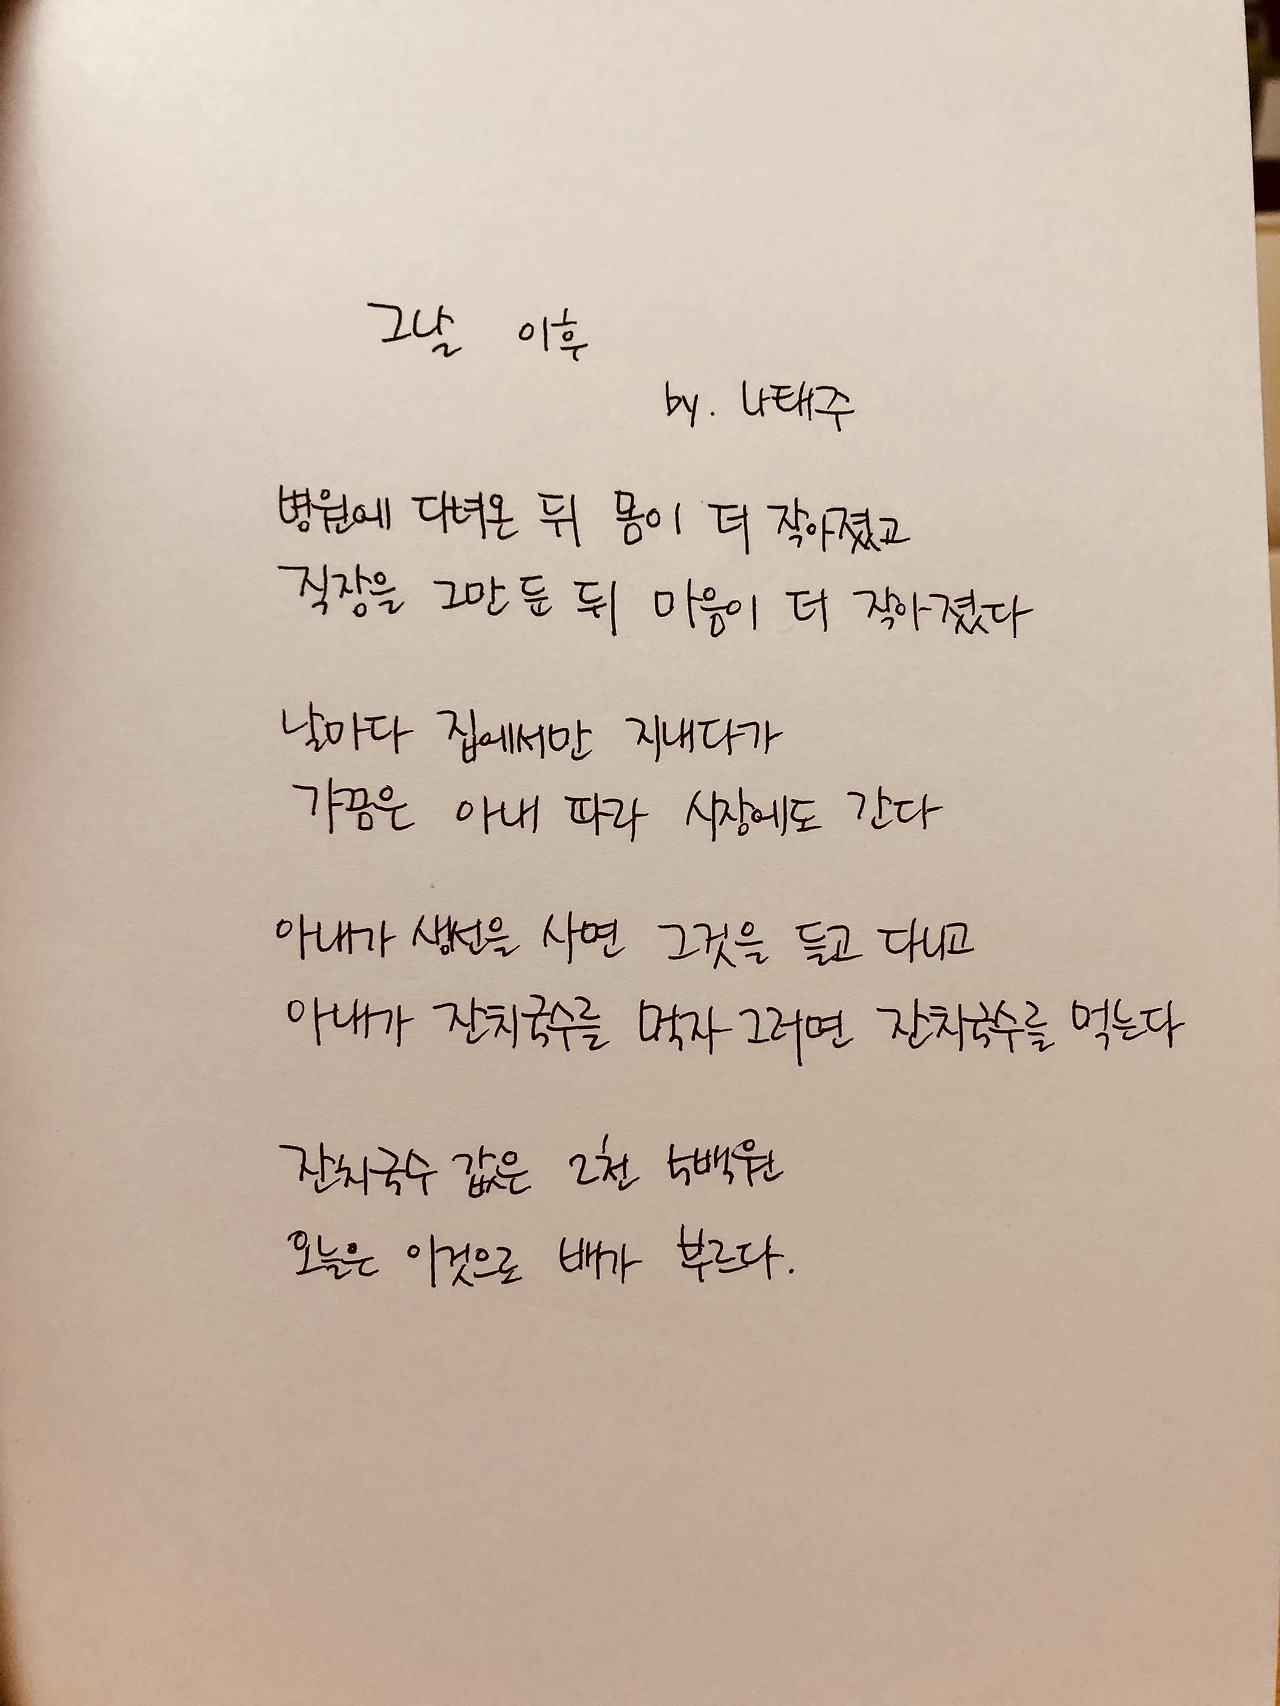 그날 이후
by. 나태주
병원에 다녀온 뒤 몸이 더 작아졌고
직장을 그만 둔 뒤 마음이 더 작아졌다
날마다 집에서만 지내다가
가끔은 아내 따라 시장에도 간다
아내가 생선을 사면 그것을 들고 다니고
아내가 잔치국수를 먹자 그러면 잔치국수를 먹는다
잔치국수 값은 2천 5백원
오늘은 이것으로 배가 부르다.